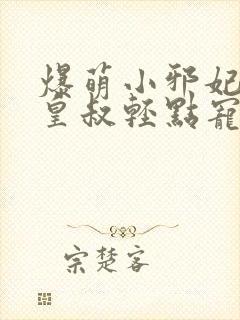 爆萌小邪妃
皇叔輕點寵
宗楚客